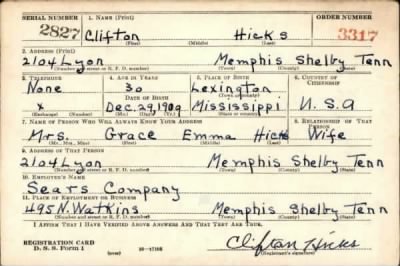 SERIAL NUMBER 1. NAME (Print) ORDER NUMBER
2827 Clifton Hicks 3317
(First) (Middle) (Last)
2. ADDRESS (Print)
2104 Lyon Memphis Shelby Tenn
(Number and street or R. F. D. number) (Town) (County) (State)
3. TELEPHONE 4. AGE IN YEARS 5. PLACE OF BIRTH 6. COUNTRY OF CITIZENSHIP
None 30 Lexington
DATE OF BIRTH (Town or county)
x Dec. 29, 1909 Mississippi U. S. A
(Exchange) (Number) (Mo.) (Day) (Yr.) (State or country)
7. NAME OF PERSON WHO WILL ALWAYS KNOW YOUR ADDRESS 8. RELATIONSHIP OF THAT PERSON
Mrs. Grace Emma Hicks Wife
(Mr., Mrs., Miss) (First) (Middle) (Last)
9. ADDRESS OF THAT PERSON
2104 Lyon Memphis Shelby Tenn
(Number and street or R. F. D. number) (Town) (County) (State)
10. EMPLOYER'S NAME
Sears Company
11. PLACE OF EMPLOYMENT OR BUSINESS
495 N. Watkins Memphis Shelby Tenn
(Number and street or R. F. D. number) (Town) (County) (State)
I AFFIRM THAT I HAVE VERIFIED ABOVE ANSWERS AND THAT THEY ARE TRUE.
REGISTRATION CARD
D. S. S. Form 1 (over) Clifton Hicks
(Registrant's signature)